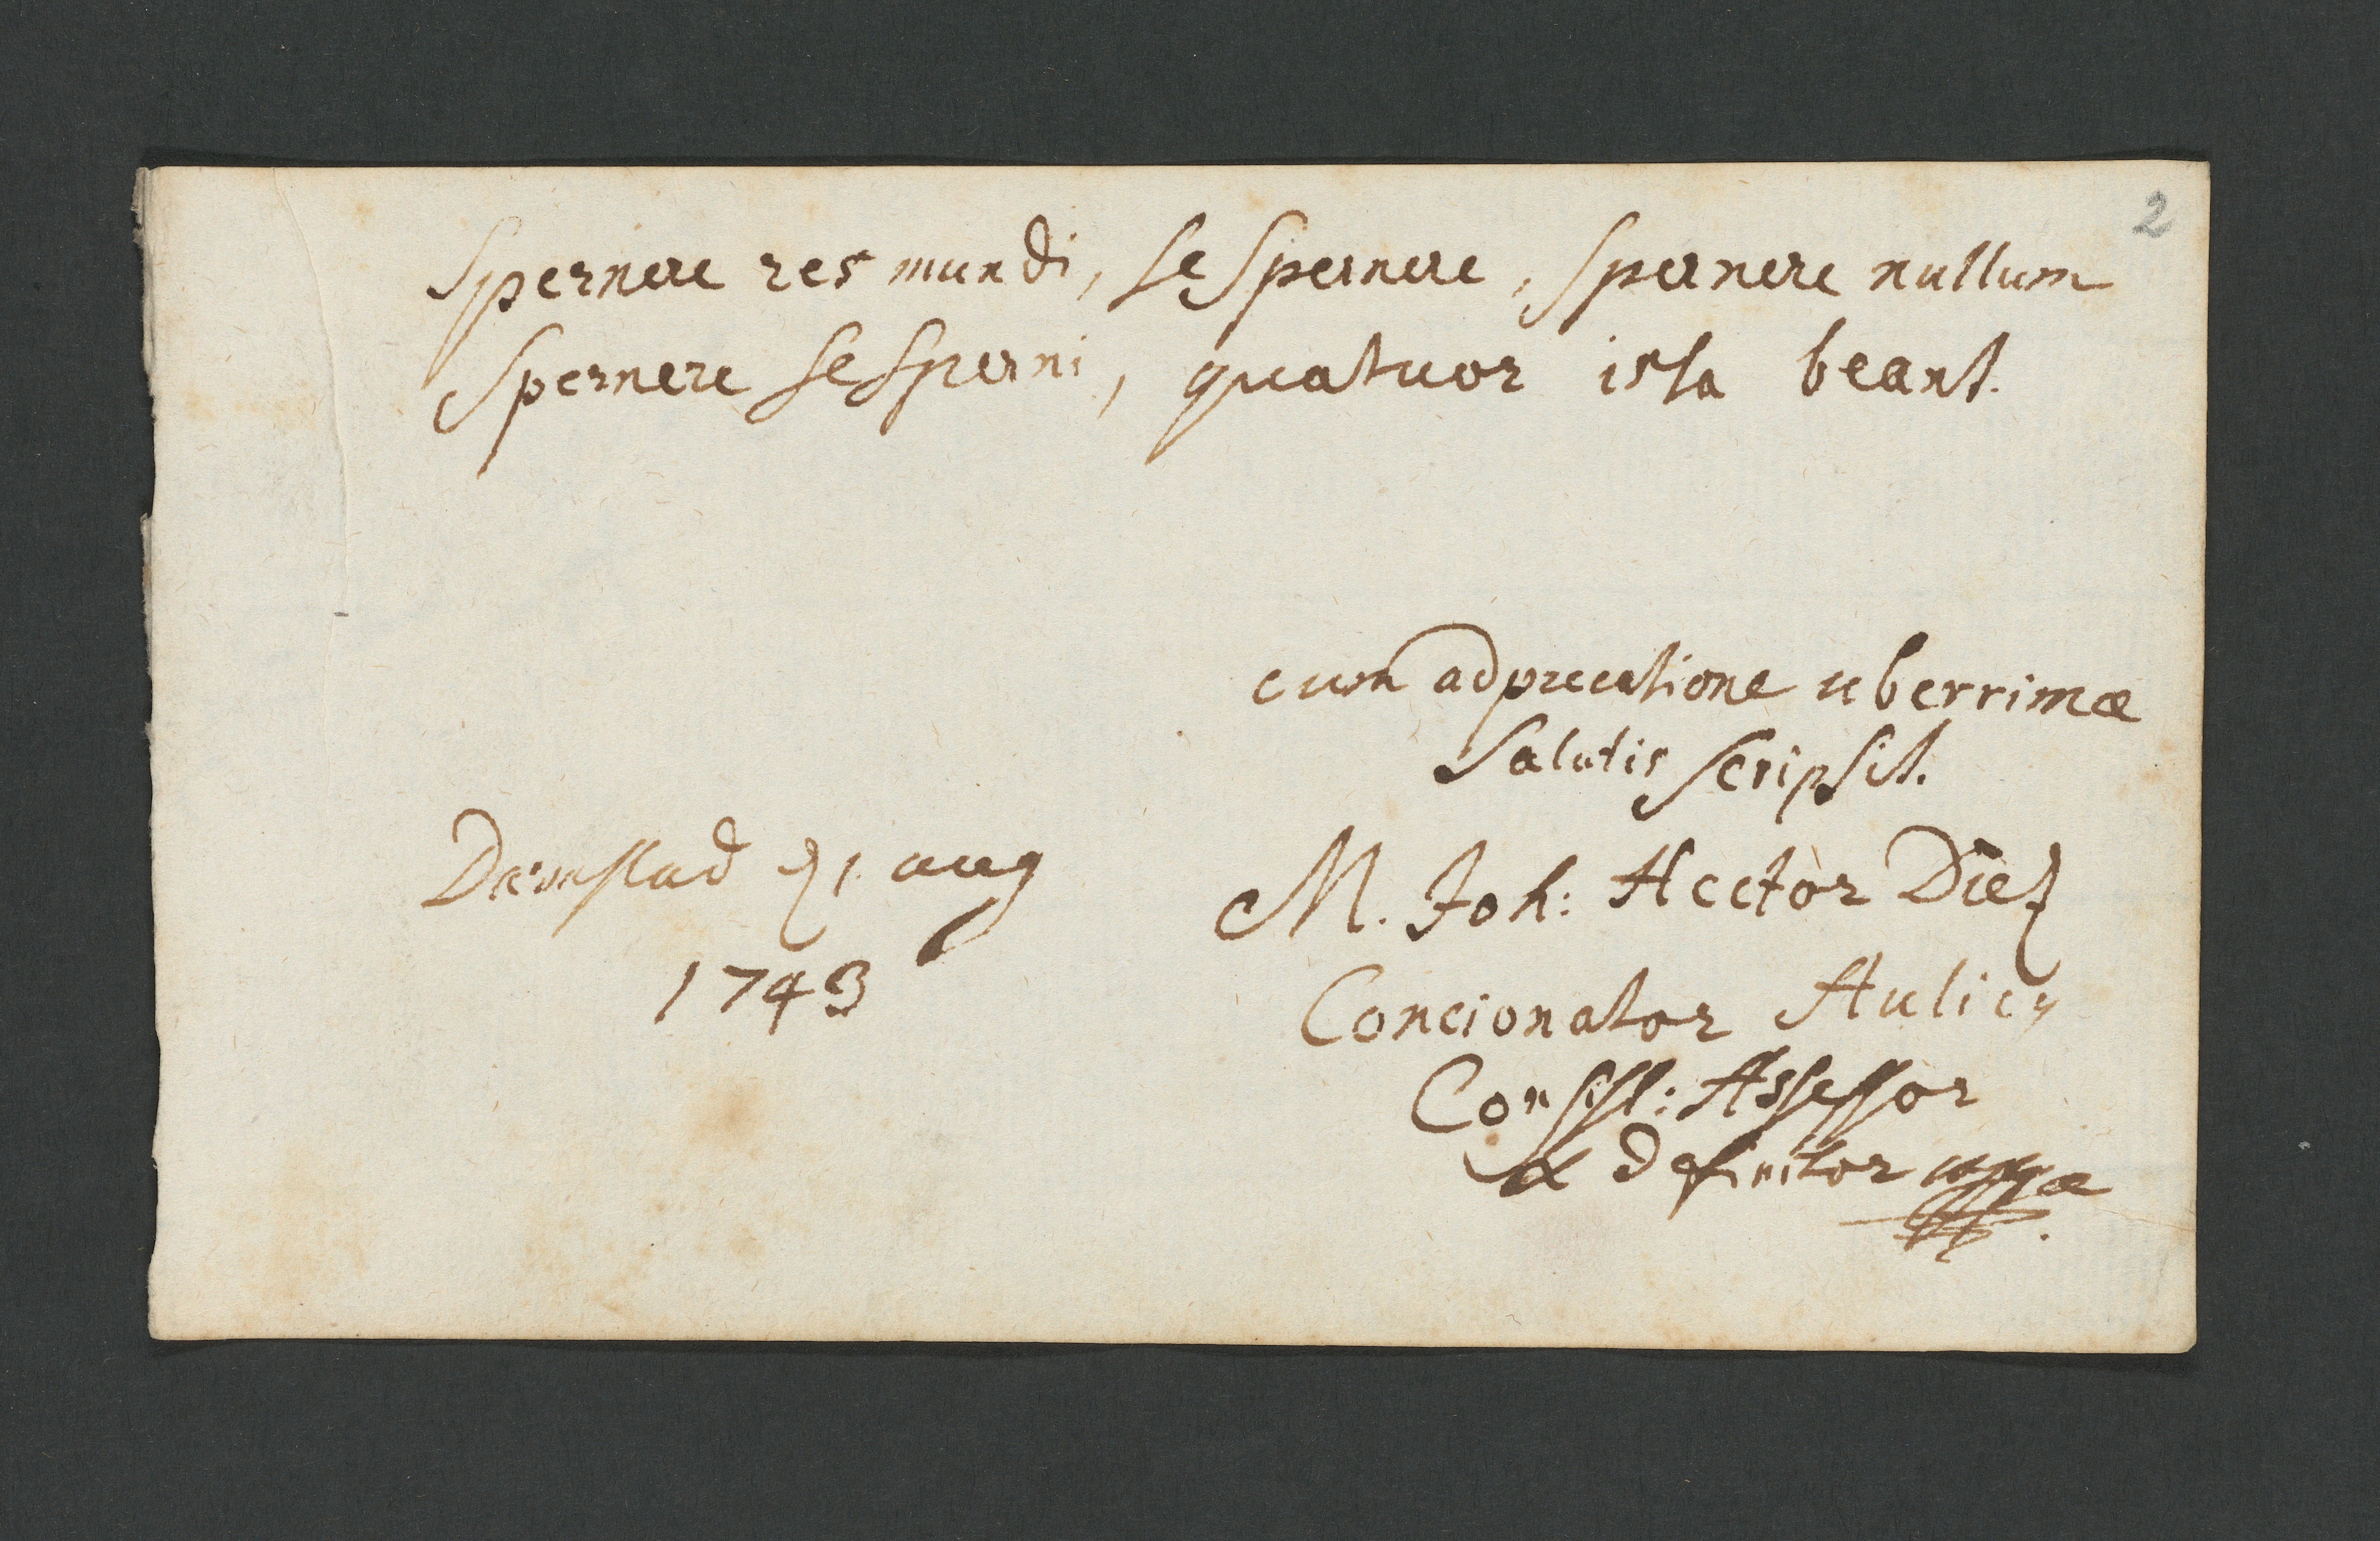 2
Spernere res mundi, se spernere, spernere nullum
Spernere se sperni, quatuor ista beant.
cum adprecatione uberrimæ
Salutis scripsit.
Darmstad 21. aug
1743
M. Joh: Hector Diez
Concionator Aulicus
Consist: Assessor
& definitor